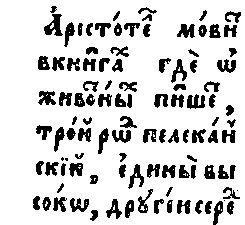 А҆рїсто́теⷧ мо́виⷮ
вкни́гаⷯ гдѐ ѡ҆
живоⷮныⷯ пи́шеⷮ,
тро́й рѡⷣ пелєка́н
скїй, є҆ди́ный вы
со́кѡ, дрꙋ́гїи сереⷣ